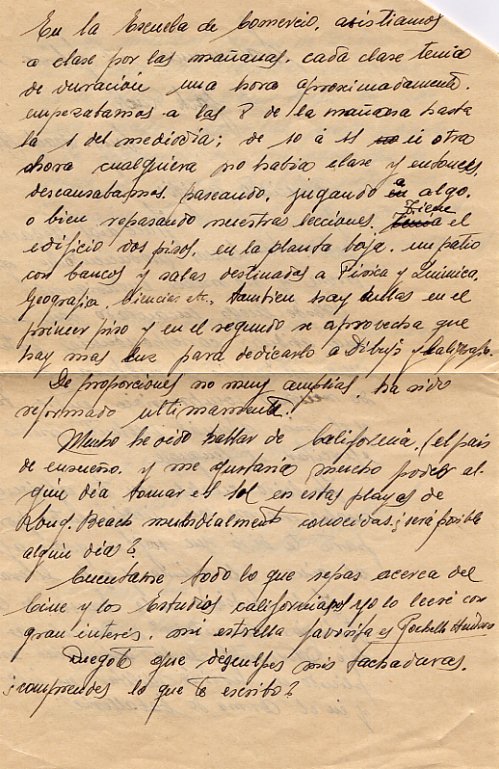 En la Escuela de Comercio, asistíamos
a clase por las mañanas, cada clase tenía
de duración una hora aproximadamente.
empezabamos a las 8 de la mañana hasta
la 1 del mediodía; de 10 á 11 ú otra
ahora cualquiera no había clase y entonces,
descansabamos, paseando, jugando a algo,
o bien repasando nuestras lecciones. Tiene el
edificio dos pisos, en la planta baja, un patio
con bancos y salas destinadas a Física y Química,
Geografía, Ciencias etc., tambien hay aulas en el
primer piso y en el segundo se aprovecha que
hay mas luz para dedicarlo a Dibujo y Caligrafía.
De proporciones no muy amplias, ha sido
reformado ultimamente.
Mucho he oido hablar de California, (el pais
de ensueño, y me gustaría mucho poder al-
gún día tomar el sol en estas playas de
Long-Beach mundialmente conocidas. ¿será posible
algún días?
Cuentame todo lo que sepas acerca del
Cine y los Estudios californianos yo lo leeré con
gran interés, mi estrella favorita es Rochelle Hudson
Ruegote que disculpes mis tachaduras.
¿comprendes lo que te escribo?